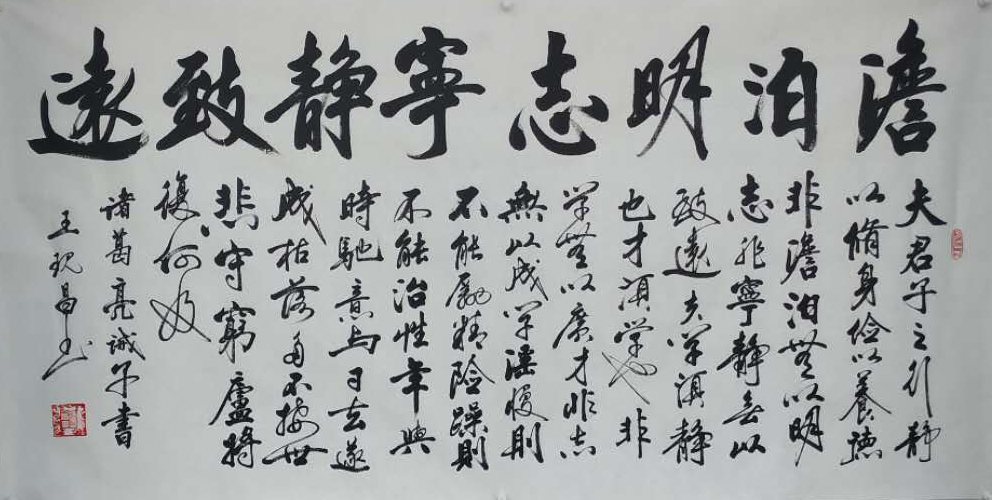 澹泊明志寧靜致遠
夫君子之行靜
以脩身儉以養德
非澹泊無以明
志非寧靜無以
致遠夫學須靜
也才須學也非
学無以廣才非志
無以成学滛慢則
不能勵精險躁則
不能治性年與
時馳意与日去遂
成枯落多不接世
悲守窮廬將
復何及
諸葛亮诫子書
王玧昌书